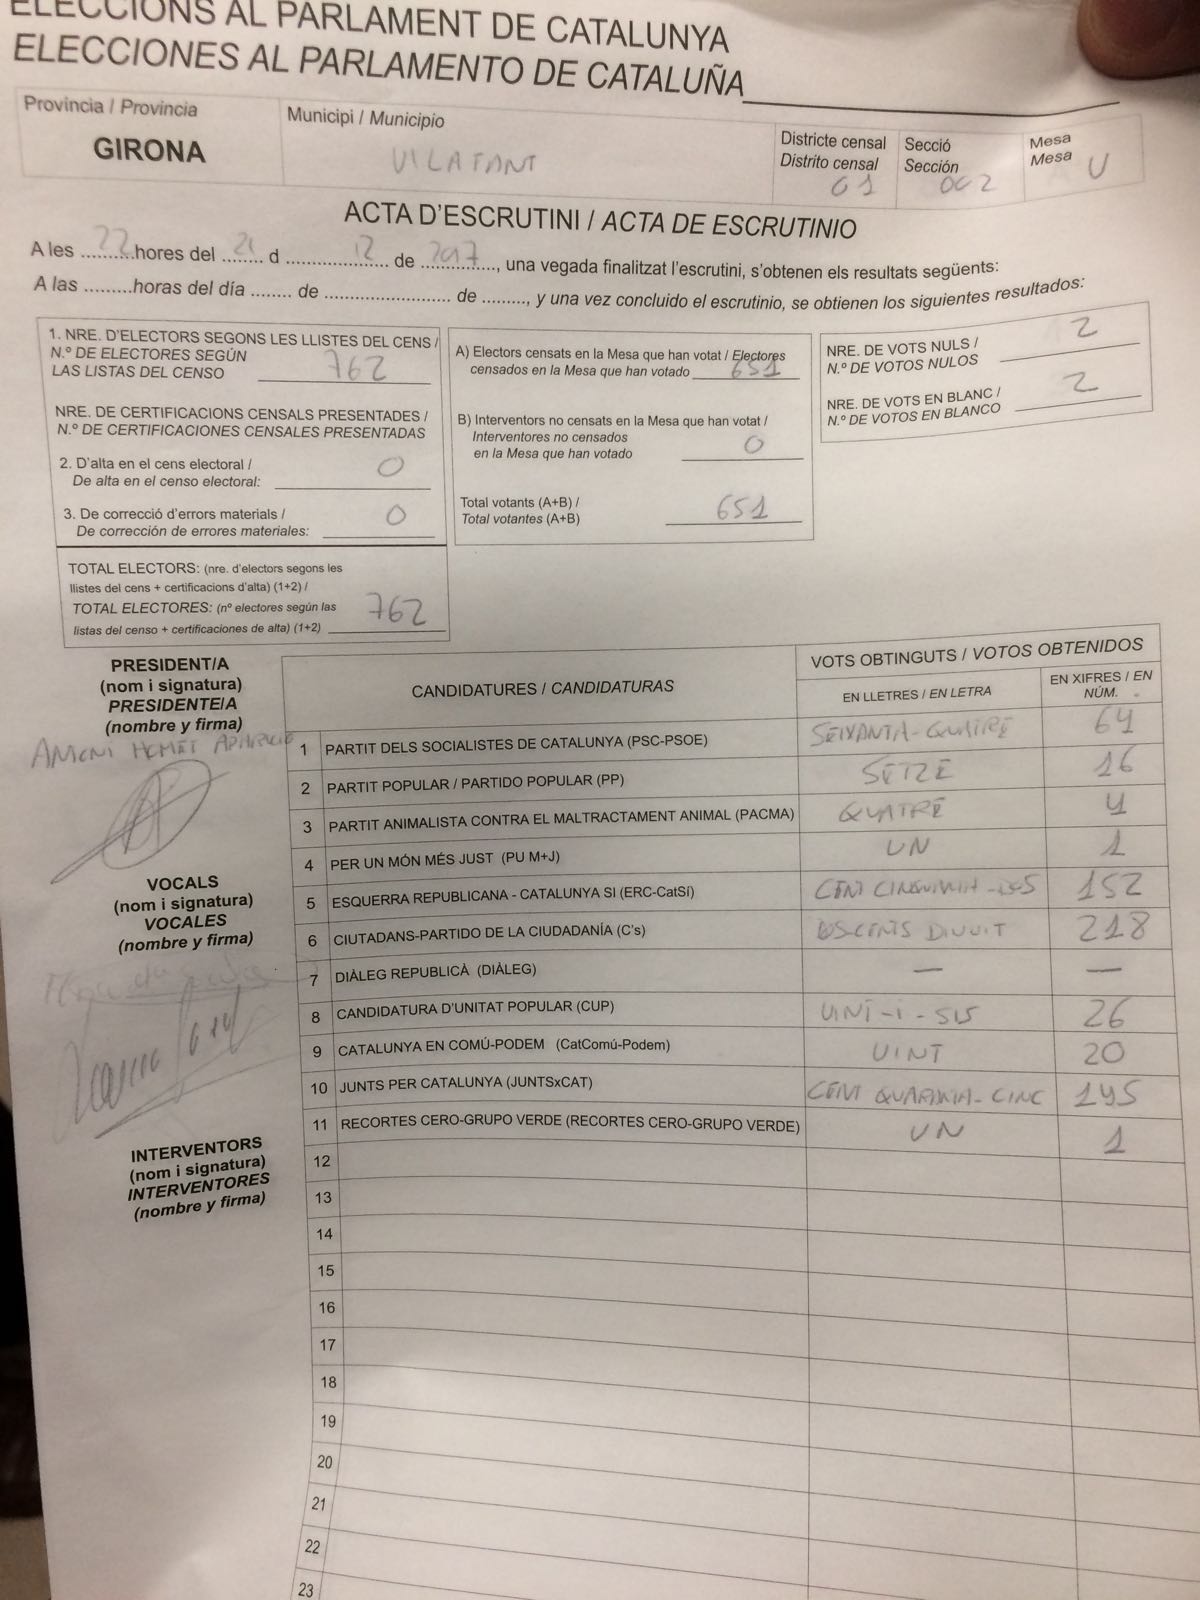 ELECCIONS AL PARLAMENT DE CATALUNYA
ELECCIONES AL PARLAMENTO DE CATALUÑA
Provincia / Provincia
GIRONA
Municipi / Municipio
VILAFANT
Districte censal
Distrito censal
01
Secció
Sección
002
Mesa
Mesa
U
ACTA D'ESCRUTINI / ACTA DE ESCRUTINIO
A les ...22...hores del ...21... d ...12... de ...2017..., una vegada finalitzat l'escrutini, s'obtenen els resultats següents:
A las .........horas del día ....... de ....................... de ........, y una vez concluido el escrutinio, se obtienen los siguientes resultados:
1. NRE. D'ELECTORS SEGONS LES LLISTES DEL CENS /
N.º DE ELECTORES SEGÚN
LAS LISTAS DEL CENSO 762
NRE. DE CERTIFICACIONS CENSALS PRESENTADES /
N.º DE CERTIFICACIONES CENSALES PRESENTADAS
2. D'alta en el cens electoral /
De alta en el censo electoral: 0
3. De correcció d'errors materials /
De corrección de errores materiales: 0
TOTAL ELECTORS: (nre. d'electors segons les
llistes del cens + certificacions d'alta) (1+2) /
TOTAL ELECTORES: (nº electores según las
listas del censo + certificaciones de alta) (1+2) 762
A) Electors censats en la Mesa que han votat / Electores
censados en la Mesa que han votado 651
B) Interventors no censats en la Mesa que han votat /
Interventores no censados
en la Mesa que han votado 0
Total votants (A+B) /
Total votantes (A+B) 651
NRE. DE VOTS NULS /
N.º DE VOTOS NULOS 2
NRE. DE VOTS EN BLANC /
N.º DE VOTOS EN BLANCO 2
PRESIDENT/A
(nom i signatura)
PRESIDENTE/A
(nombre y firma)
APARICIO
VOCALS
(nom i signatura)
VOCALES
(nombre y firma)
INTERVENTORS
(nom i signatura)
INTERVENTORES
(nombre y firma)
CANDIDATURES / CANDIDATURAS
VOTS OBTINGUTS / VOTOS OBTENIDOS
EN LLETRES / EN LETRA
EN XIFRES / EN NÚM.
1 PARTIT DELS SOCIALISTES DE CATALUNYA (PSC-PSOE) SEIXANTA-QUATRE 64
2 PARTIT POPULAR / PARTIDO POPULAR (PP) SETZE 16
3 PARTIT ANIMALISTA CONTRA EL MALTRACTAMENT ANIMAL (PACMA) QUATRE 4
4 PER UN MÓN MÉS JUST (PU M+J) UN 1
5 ESQUERRA REPUBLICANA - CATALUNYA SI (ERC-CatSí) CENT CINQUANTA-DOS 152
6 CIUTADANS-PARTIDO DE LA CIUDADANÍA (C's) DOSCENTS DIVUIT 218
7 DIÀLEG REPUBLICÀ (DIÀLEG) — —
8 CANDIDATURA D'UNITAT POPULAR (CUP) VINT-I-SIS 26
9 CATALUNYA EN COMÚ-PODEM (CatComú-Podem) VINT 20
10 JUNTS PER CATALUNYA (JUNTSxCAT) CENT QUARANTA-CINC 145
11 RECORTES CERO-GRUPO VERDE (RECORTES CERO-GRUPO VERDE) UN 1
12
13
14
15
16
17
18
19
20
21
22
23